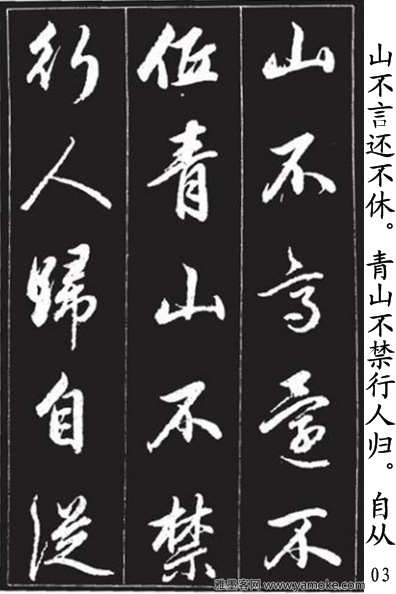 山不言还不休。青山不禁行人归。自从
03
山不高還不
低青山不禁
行人歸自從
雅墨客网 www.yamoke.com